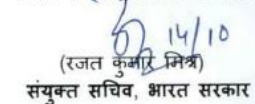 14/10
(रजत कुमार मिश्र)
संयुक्त सचिव, भारत सरकार